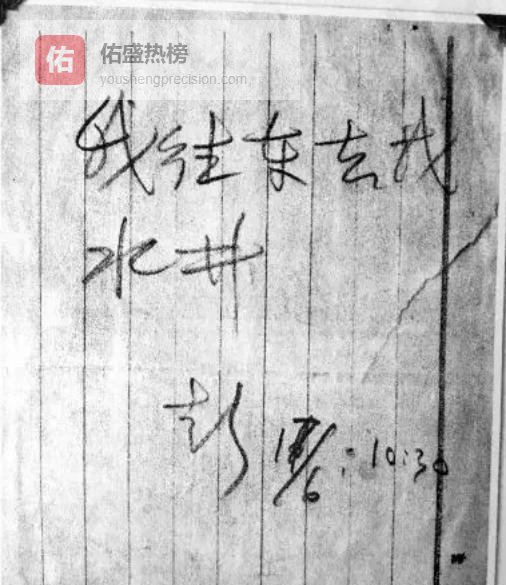 佑
佑盛热榜
youshengprecision.com
我往东去找
水井
彭 17/6: 10:30